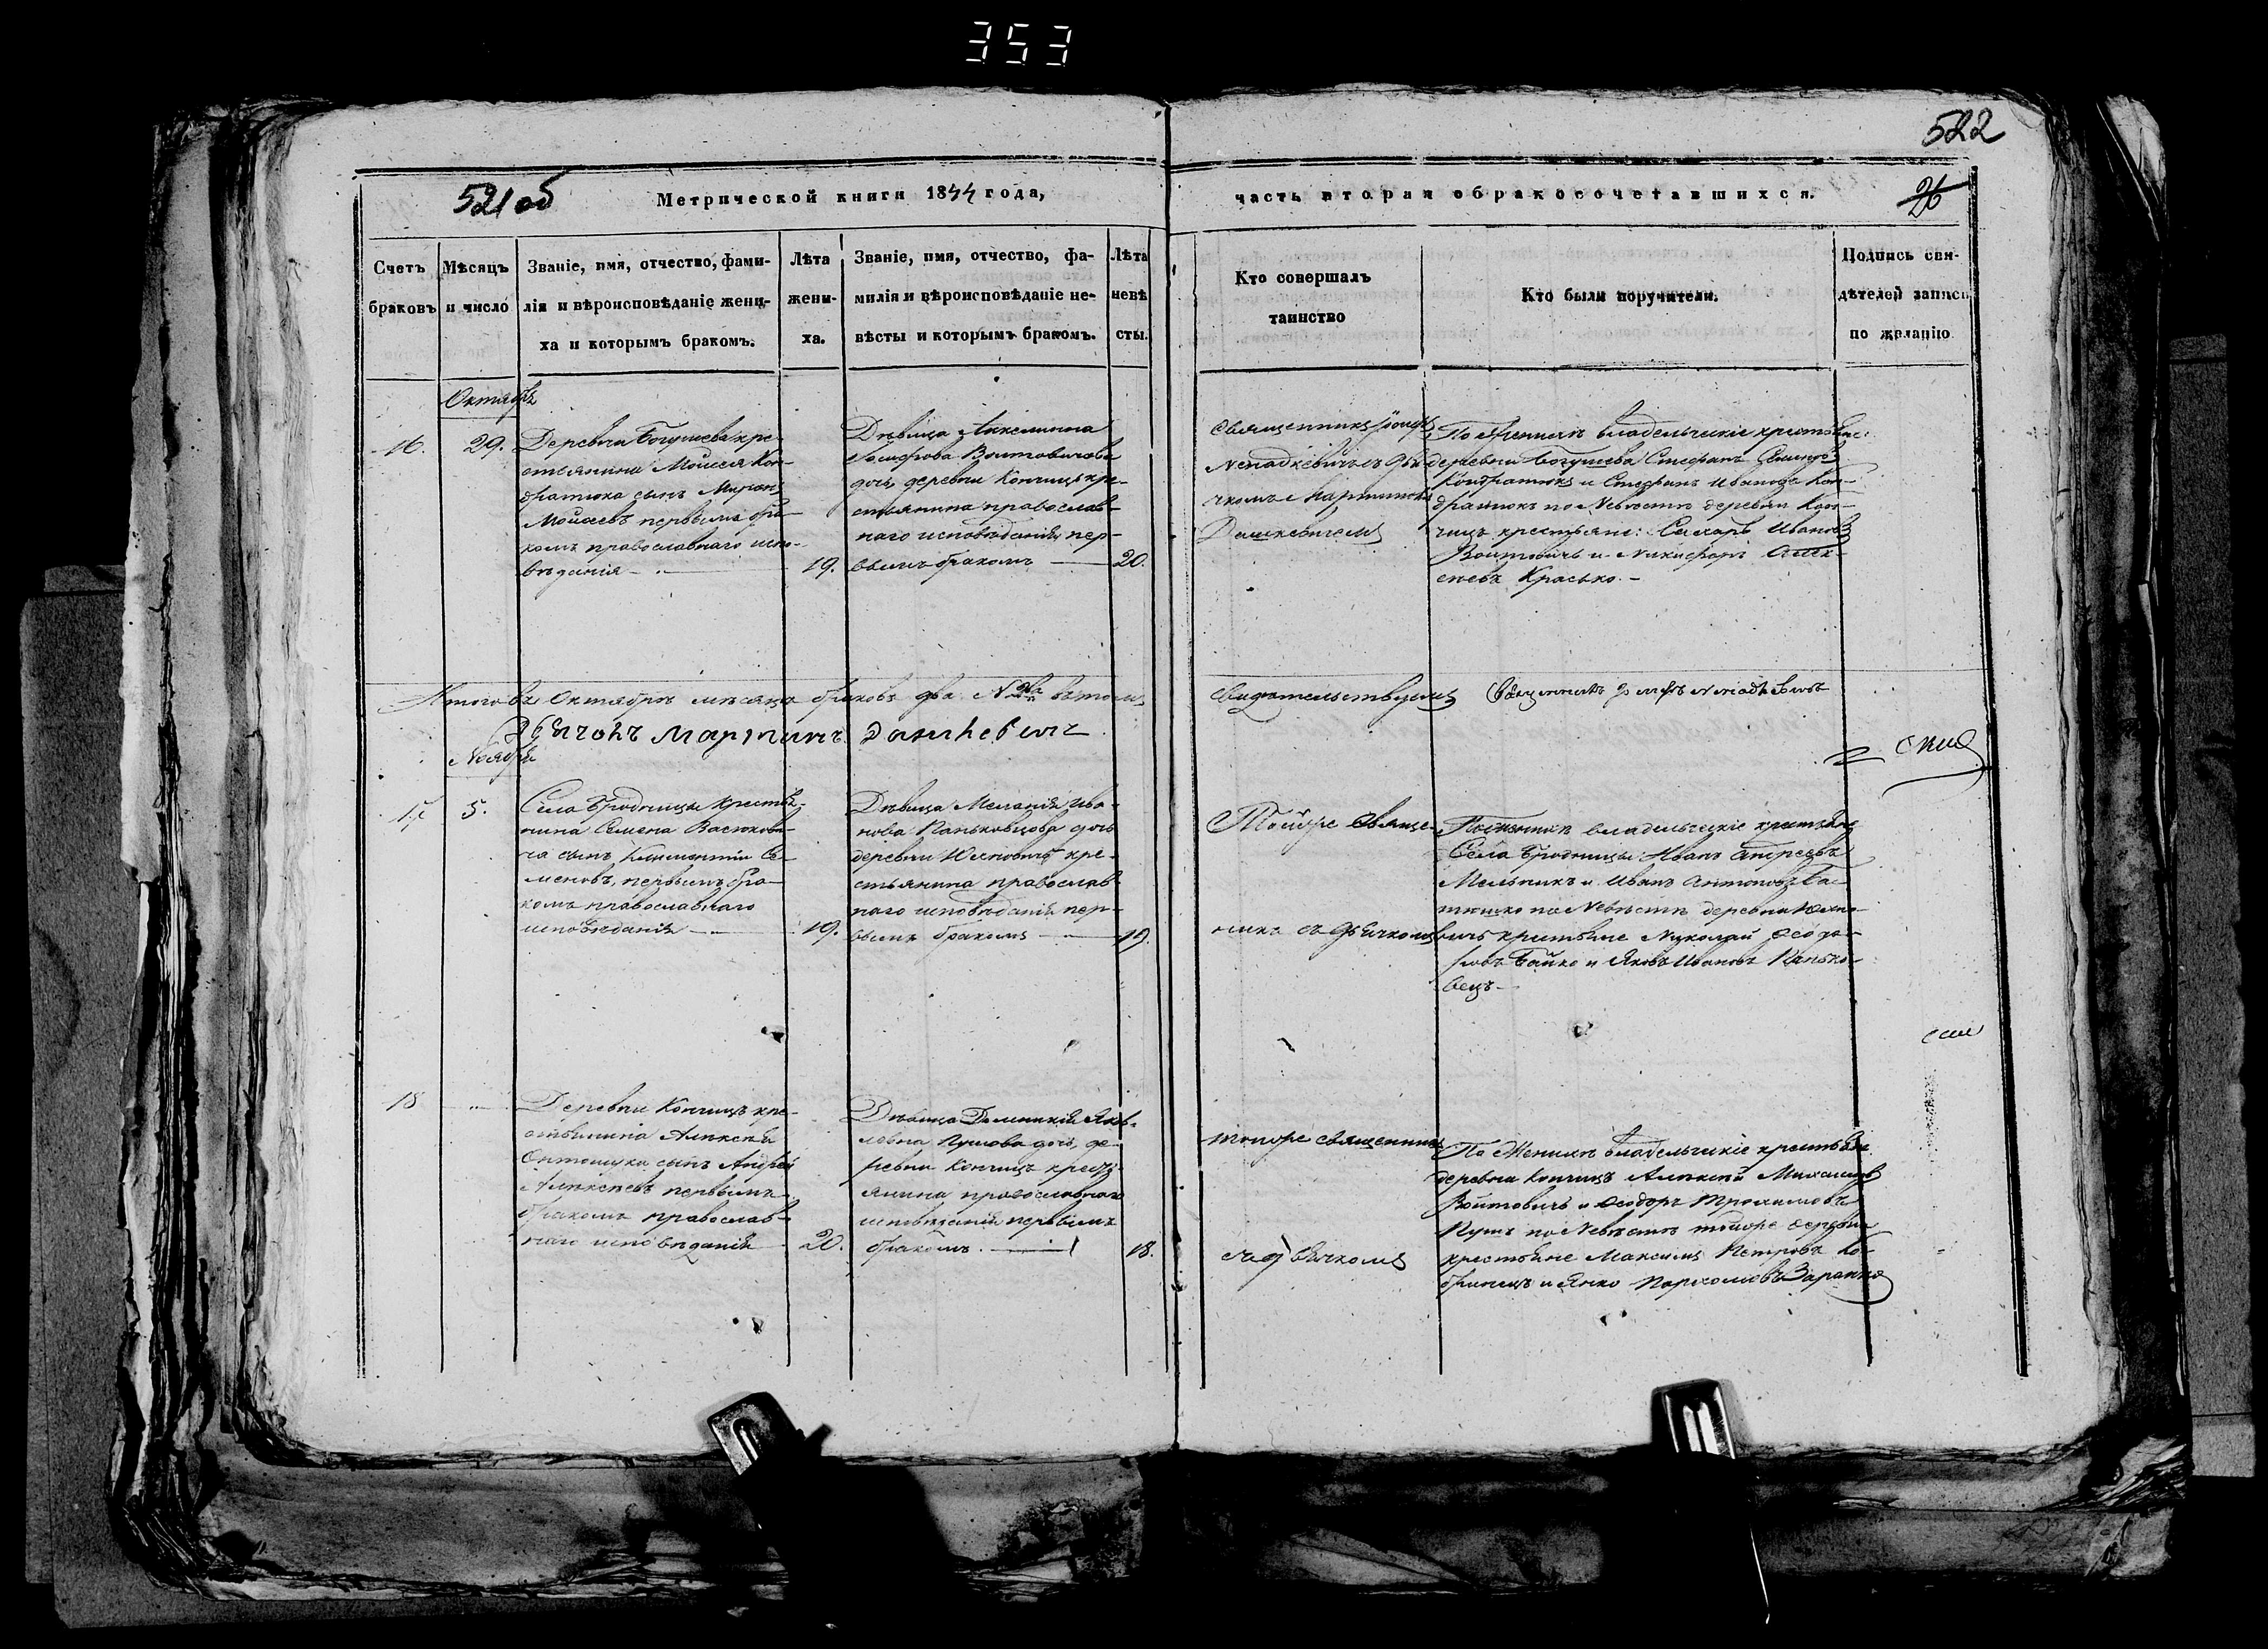 353
522
521об
Метрической книги 1844 года,
часть вторая о бракосочетавшихся.
26
Счетъ браковъ
Мѣсяцъ и число
Званіе, имя, отчество, фами-
лія и вѣроисповѣданіе жени-
ха и которымъ бракомъ.
Лѣта жени-
ха.
Званіе, имя, отчество, фа-
милія и вѣроисповѣданіе не-
вѣсты и которымъ бракомъ.
Лѣта невѣ
сты.
Кто совершалъ
таинство
Кто были поручители.
Подпись сви-
дѣтелей записи
по желанію
Октябрь
16.
29.
Деревни Богушева кре-
стьянина Моисея Кон-
дратюка сынъ Миронъ
Моисеевъ первымъ бра-
комъ православнаго испо-
вѣданія
19.
Дѣвица
Іосифова Войтовичова
дочь деревни Кончицъ кре-
стьянина православ-
наго исповѣданія пер-
вымъ бракомъ
20.
Священникъ Іосифъ
съ дья
чкомъ Мартиномъ
Дашкевичемъ
По Женихѣ владельческіе крестьяне:
деревни Богушева Стефанъ
Кондратюкъ и Стефанъ Ивановъ Кон-
дратюкъ по Невѣстѣ деревни Кон-
чицъ крестьяне: Ивановъ
Войтовичъ и Никифоръ Алек-
сѣевъ Красько.
Итого въ Октябрѣ мѣсяцѣ браковъ два №два въ томъ
свидетельствуемъ
Священникъ
Дьячокъ Мартинъ Дашкевичъ
Ноябрь
17.
5.
Села Бродницы крестья-
нина Семена Васюкови-
ча сынъ Климентій Се-
меновъ, первымъ бра-
комъ православнаго
исповѣданія
19.
Дѣвица Меланія Ива-
нова Паньковцова дочь
деревни Юхновичъ кре-
стьянина православ-
наго исповѣданія пер-
вымъ бракомъ
19.
Тойже Священ-
никъ съ дьячкомъ
По Женихѣ владельческіе крестьяне
Села Бродницы: Иванъ Андреевъ
Мельникъ и Иванъ Антоновъ
по Невѣстѣ деревни Юхно-
вичъ крестьяне Николай Ѳеодо-
ровъ Байко и Яковъ Ивановъ Панько-
вецъ
18
Деревни Кончицъ кре-
стьянина Алексѣя
Онтонюка сынъ Андрей
Алексѣевъ первымъ
бракомъ православ-
наго исповѣданія
20.
Дѣвица Доминикія Яков-
левна дочь, де-
ревни Кончицъ крест-
янина православнаго
исповѣданія первымъ
бракомъ.
18.
тойже священникъ
съ дьячкомъ
По Женихѣ владельческіе крестьяне
деревни Кончицъ Алексѣй Михайловъ
Войтовичъ и Ѳеодоръ Трохимовъ
по Невѣстѣ тойже деревни
крестьяне Максимъ Петровъ Ко-
бринецъ и Янко Пархомовъ